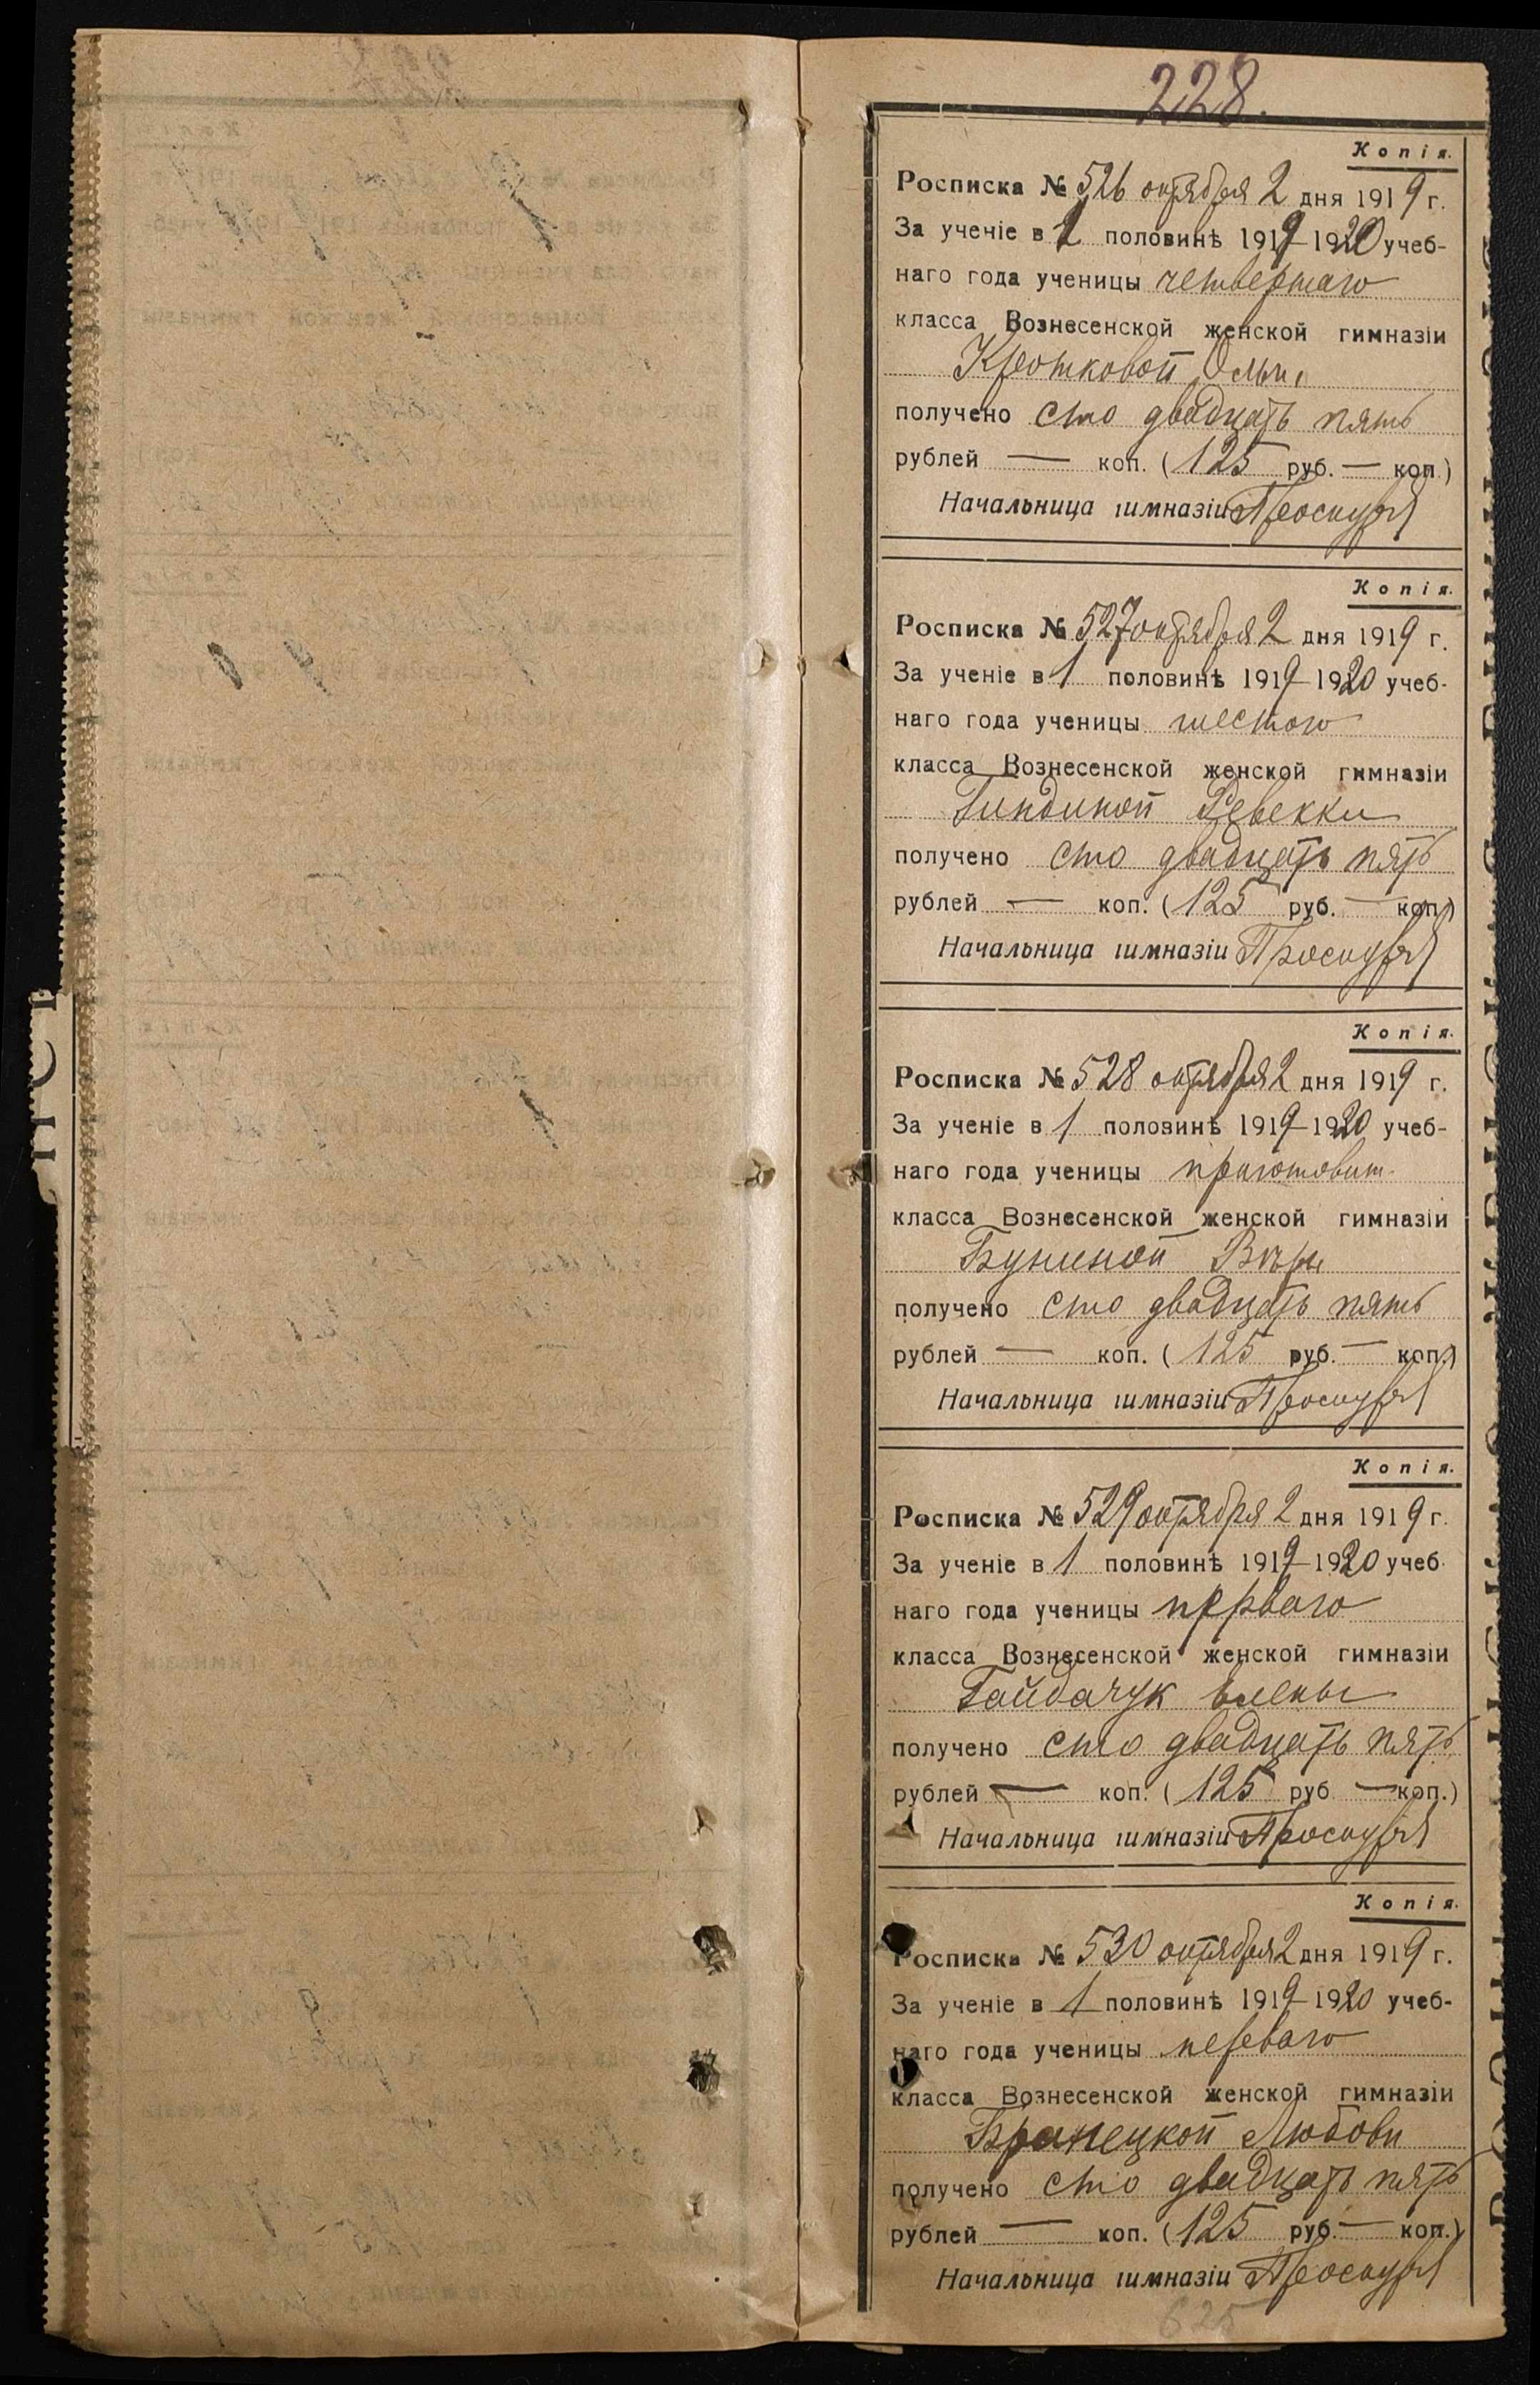 228.
Копія.
Росписка № 526 октября 2 дня 1919 г.
За ученіе в 1 половинѣ 1919-1920 учеб-
наго года ученицы четвертаго
класса Вознесенской женской гимназіи
Кротковой Ольги
получено сто двадцать пять
рублей — коп. (125 руб. — коп.)
Начальница гимназіи
Копія.
Росписка № 527 октября 2 дня 1919 г.
За ученіе в 1 половинѣ 1919-1920 учеб-
наго года ученицы шестого
класса Вознесенской женской гимназіи
Гиндиной Ревекки
получено сто двадцать пять
рублей — коп. (125 руб. — коп.)
Начальница гимназіи
Копія.
Росписка № 528 октября 2 дня 1919 г.
За ученіе в 1 половинѣ 1919-1920 учеб-
наго года ученицы приготовит.
класса Вознесенской женской гимназіи
Буниной Вѣры
получено сто двадцать пять
рублей — коп. (125 руб. — коп.)
Начальница гимназіи
Копія.
Росписка № 529 октября 2 дня 1919 г.
За ученіе в 1 половинѣ 1919-1920 учеб-
наго года ученицы перваго
класса Вознесенской женской гимназіи
Гайдачук Елены
получено сто двадцать пять
рублей — коп. (125 руб — коп.)
Начальница гимназіи
Копія.
Росписка № 530 октября 2 дня 1919 г.
За ученіе в 1 половинѣ 1919-1920 учеб-
наго года ученицы перваго
класса Вознесенской женской гимназіи
Бранецкой Любови
получено сто двадцать пять
рублей — коп. (125 руб. — коп.)
Начальница гимназіи
625